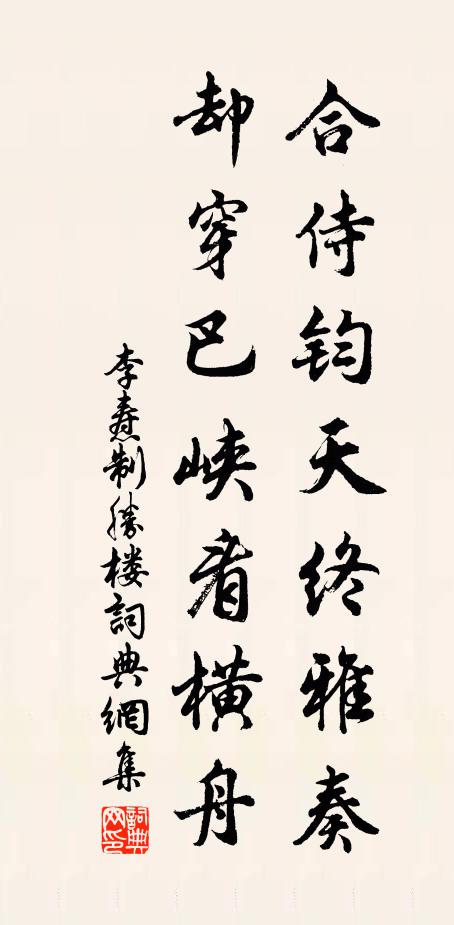 合侍鈞天终雅奏
却穿巴峡看横舟
李燾制勝楼詞典網集
詞典網印